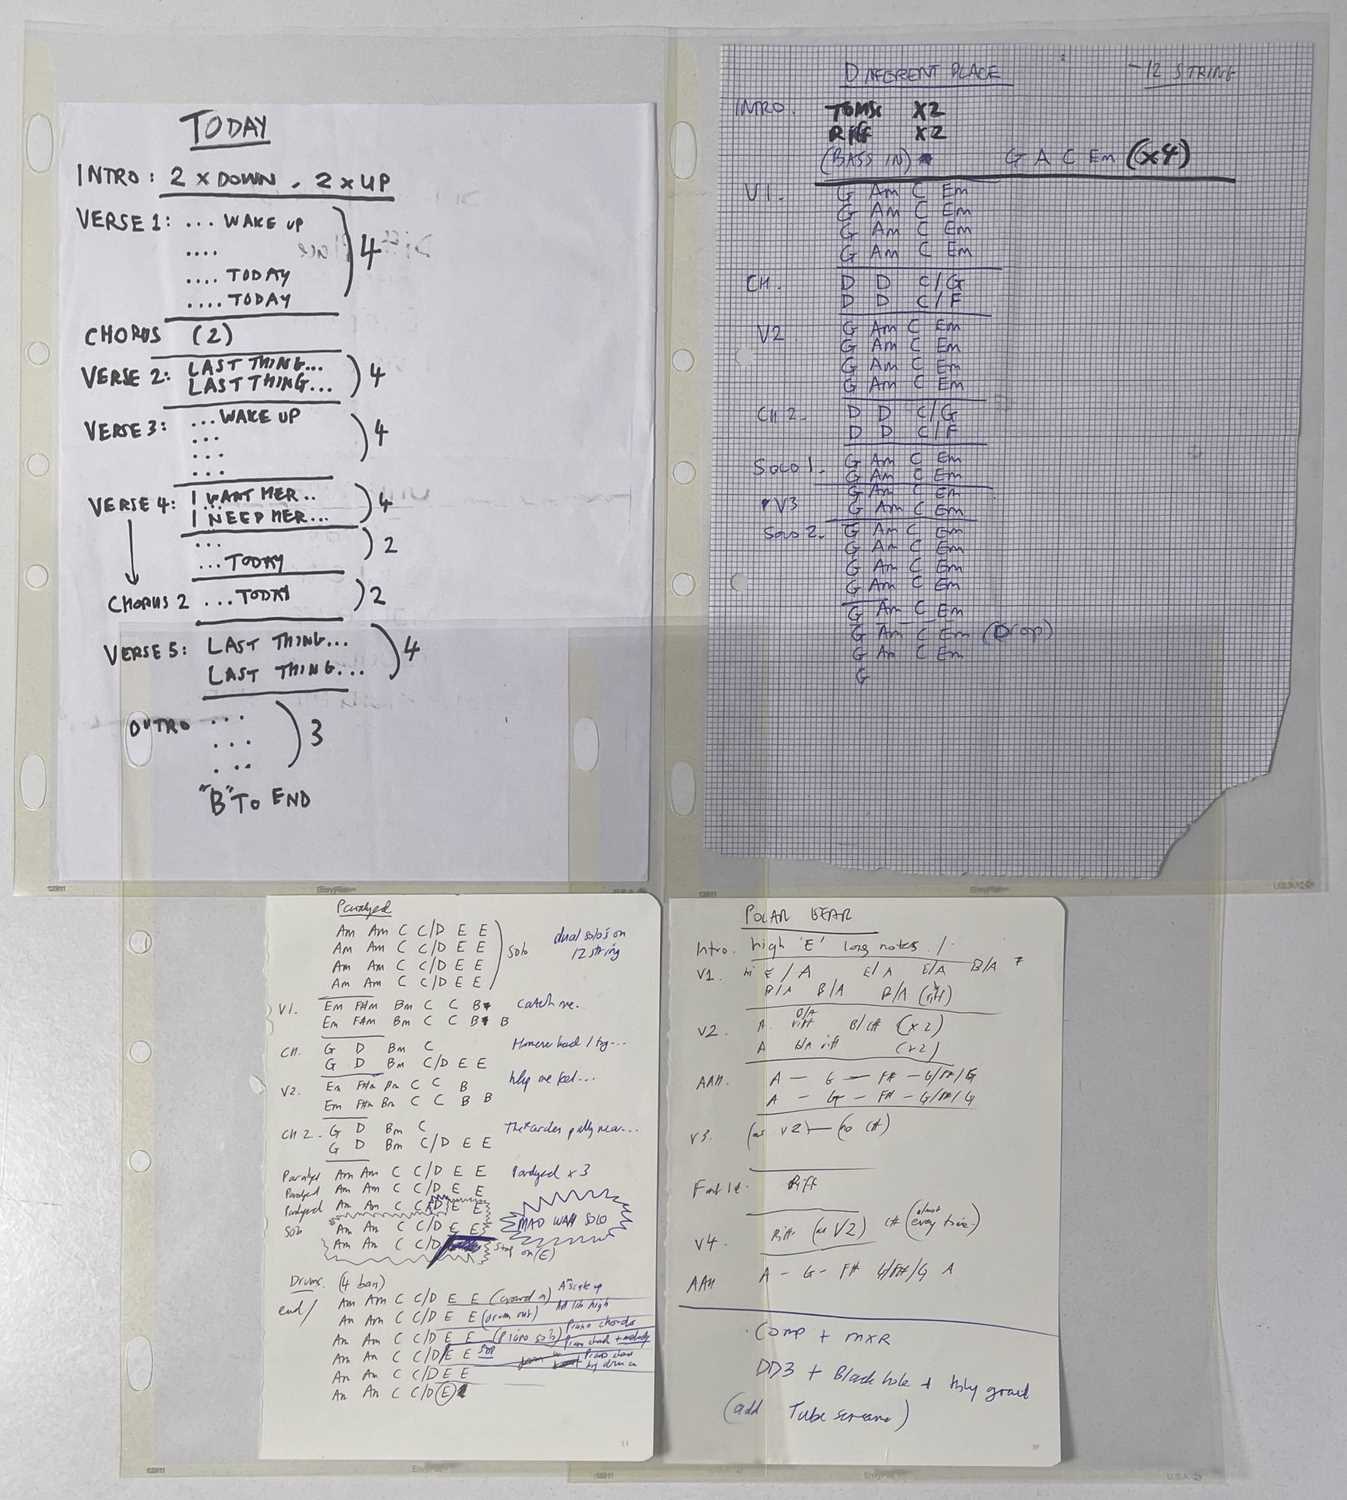 TODAY
INTRO: 2 x DOWN. 2 x UP
VERSE 1: ... WAKE UP
....
.... TODAY
.... TODAY
) 4
CHORUS (2)
VERSE 2: LAST THING...
LAST THING...
) 4
VERSE 3: ... WAKE UP
...
...
...
) 4
VERSE 4: I WANT HER..
I NEED HER...
) 4
...
... TODAY
) 2
CHORUS 2 ... TODAY ) 2
VERSE 5: LAST THING...
LAST THING...
) 4
OUTRO ...
...
...
) 3
"B" TO END
DIFFERENT PLACE
-12 STRING
INTRO. TOMS X2
RIFF X2
(BASS IN) G A C Em (x4)
V1. G Am C Em
G Am C Em
G Am C Em
G Am C Em
CH. D D C/G
D D C/F
V2 G Am C Em
G Am C Em
G Am C Em
G Am C Em
CH 2. D D C/G
D D C/F
SOLO 1. G Am C Em
G Am C Em
V3 G Am C Em
G Am C Em
SOLO 2. G Am C Em
G Am C Em
G Am C Em
G Am C Em
G Am C Em
G Am C Em (Drop)
G Am C Em
G
Paralyzed
Am Am C C/D E E
Am Am C C/D E E
Am Am C C/D E E
Am Am C C/D E E
Solo
dual solo's on
12 string
V1. Em F#m Bm C C B
Em F#m Bm C C B B
catch me.
CH. G D Bm C
G D Bm C/D E E
V2. Em F#m Bm C C B
Em F#m Bm C C B B
help me feel...
CH 2. G D Bm C
G D Bm C/D E E
Paralyzed Am Am C C/D E E Paralyzed x 3
Paralyzed Am Am C C/D E E
Paralyzed Am Am C C/D E E
Solo Am Am C C/D E E
Am Am C C/D
MAD WAH SOLO
Stop on (E)
Drums. (4 bars)
end/ Am Am C C/D E E
Am Am C C/D E E (drum out)
Am Am C C/D E E (Piano solo) Piano chords
Am Am C C/D E E Stop
Am Am C C/D E E
Am Am C C/D (E)
POLAR BEAR
Intro. high 'E' long notes
V1. E/A E/A E/A B/A
B/A B/A B/A (riff)
V2. A D/A riff B/C# (x2)
A riff (x2)
AAH. A — G — F# — G/F#/G
A — G — F# — G/F#/G
V3. (as V2) — (no C#)
Riff
V4 Riff (as V2) C# (almost every time)
AAH A - G - F# G/F#/G A
Comp + MXR
DD3 + Black hole + Holy grail
(add Tube screamer)